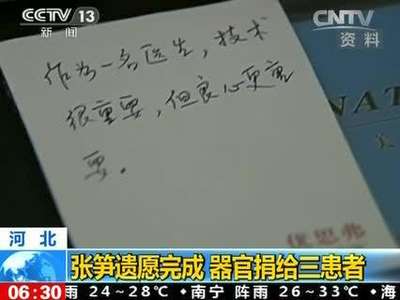 CCTV 13
新闻
CNTV
资料
作为一名医生，技术
很重要，但良心更重
要。
NAT
美
张思弗
河北
张笋遗愿完成 器官捐给三患者
06:30
雨 24~28℃ ·南宁 阵雨 26~33℃ ·海